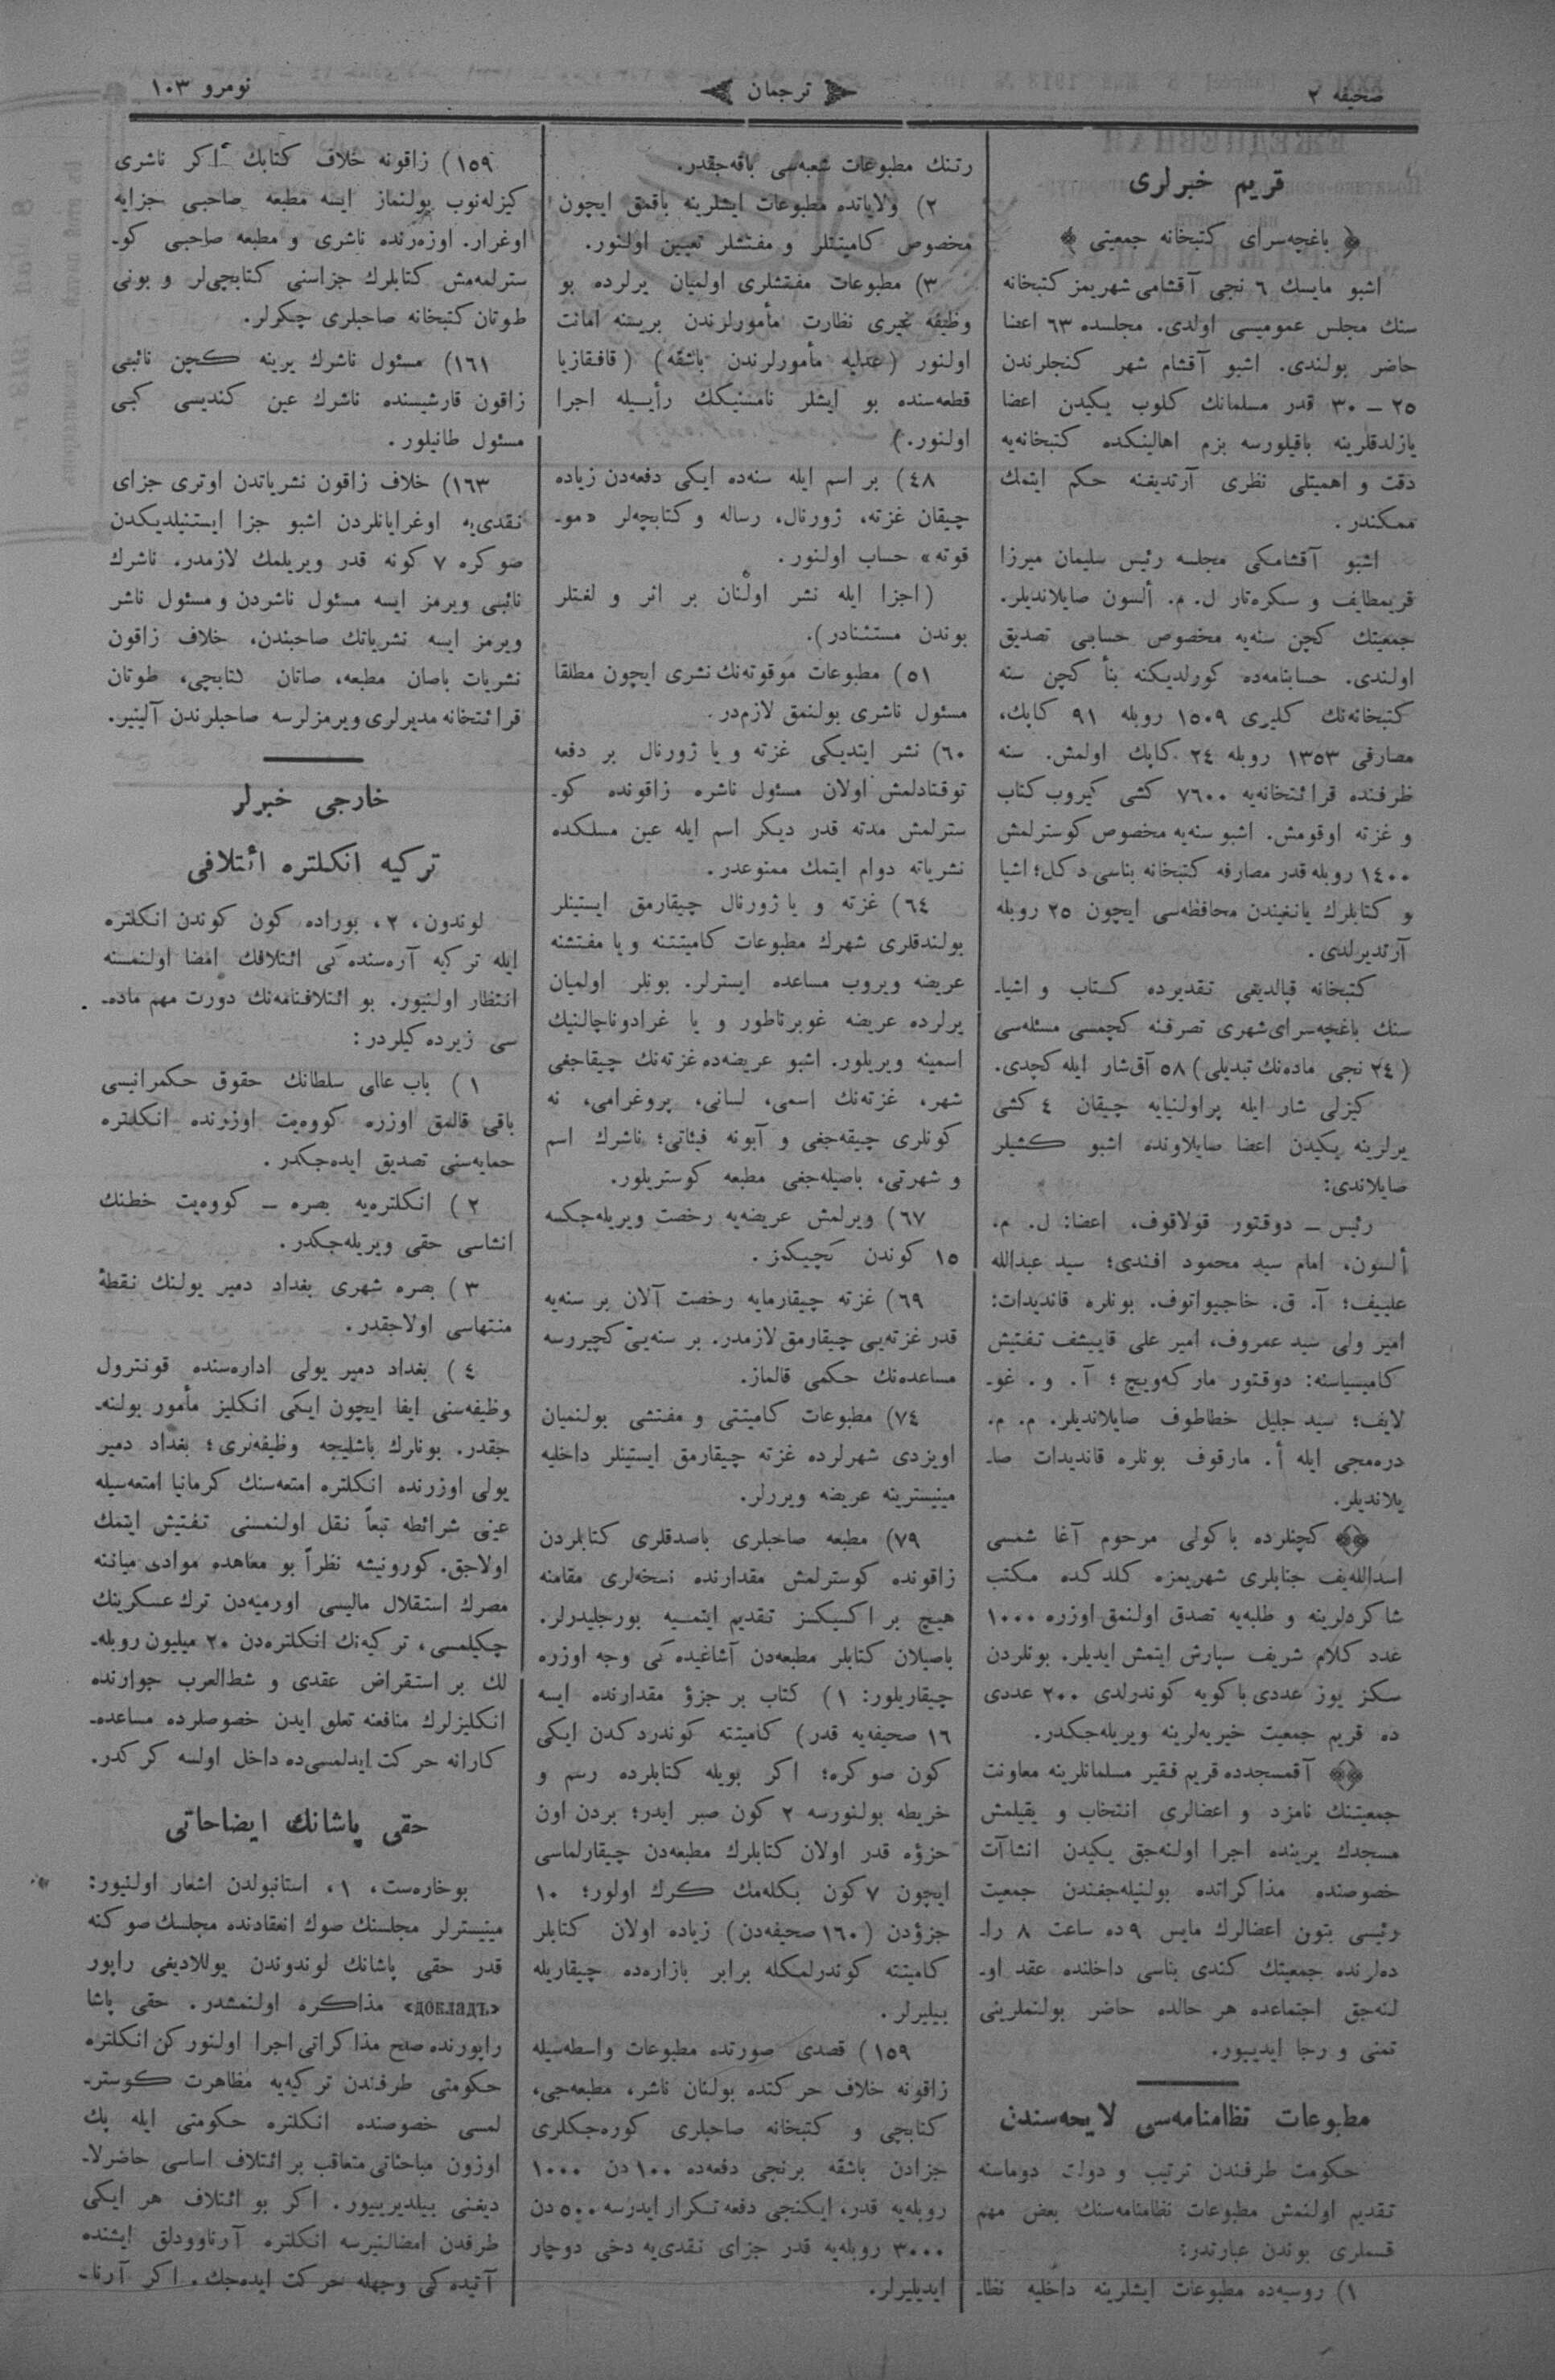 صحیفه ٢
ترجمان
نومرو ١٠٣
قریم خبرلری
﴿ باغچه‌سرای کتبخانه جمعیتی ﴾
اشبو مایسك ٦ نجی آقشامی شهریمز کتبخانه
سنك مجلس عمومیسی اولدی. مجلسده ٦٣ اعضا
حاضر بولندی. اشبو آقشام شهر کنجلرندن
٢٥ – ٣٠ قدر مسلمانك کلوب یکیدن اعضا
یازلدقلرینه باقیلورسه بزم اهالینکده کتبخانه‌یه
دقت و اهمیتلی نظری آرتدیغنه حکم ایتمك
ممکندر.
اشبو آقشامکی مجلسه رئیس سلیمان میرزا
قریمطایف و سکره‌تار ل. م. ألسون صایلاندیلر.
جمعیتك کچن سنه‌یه مخصوص حسابی تصدیق
اولندی. حسابنامه‌ده کورلدیکنه بنأ کچن سنه
کتبخانه‌نك کلیری ١٥٠٩ روبله ٩١ کاپك،
مصارفی ١٣٥٣ روبله ٢٤ کاپك اولمش. سنه
ظرفنده قرائتخانه‌یه ٧٦٠٠ کشی کیروب کتاب
و غزته اوقومش. اشبو سنه‌یه مخصوص کوسترلمش
١٤٠٠ روبله قدر مصارفه کتبخانه بناسی دکل؛ اشیا
و کتابلرك یانغیندن محافظه‌سی ایچون ٢٥ روبله
آرتدیرلدی.
کتبخانه قپالدیغی تقدیرده کـتاب و اشیا۔
سنك باغچه‌سرای شهری تصرفنه کچمسی مسئله‌سی
(٢٤ نجی ماده‌نك تبدیلی) ٥٨ آق‌شار ایله کچدی.
کیزلی شار ایله پراولنیایه چیقان ٤ کشی
یرلرینه یکیدن اعضا صایلاونده اشبو کشیلر
صایلاندی:
رئیس – دوقتور قولاقوف، اعضا: ل. م.
ألسون، امام سید محمود افندی؛ سید عبدالله
علییف؛ آ. ق. خاجیواتوف. بونلره قاندیدات:
امیر ولی سید عمروف، امیر علی قاییشف تفتیش
کامیسیاسنه: دوقتور مارکه‌ویچ ؛ آ. و. غو۔
لایف؛ سید جلیل خطاطوف صایلاندیلر. م. م.
دره‌مجی ایله أ. مارقوف بونلره قاندیدات صا۔
یلاندیلر.
کچنلرده باکولی مرحوم آغا شمسی
اسدالله‌یف جنابلری شهریمزه کلدکده مکتب
شاکردلرینه و طلبه‌یه تصدق اولنمق اوزره ١٠٠٠
عدد کلام شریف سپارش ایتمش ایدیلر. بونلردن
سکز یوز عددی باکویه کوندرلدی ٢٠٠ عددی
ده قریم جمعیت خیریه‌لرینه ویریله‌جکدر.
آقمسجدده قریم فقیر مسلمانلرینه معاونت
جمعیتنك نامزد و اعضالری انتخاب و یقیلمش
مسجدك یرینده اجرا اولنه‌جق یکیدن انشاآت
خصوصنده مذاکراتده بولنیله‌جغندن جمعیت
رئیسی بتون اعضالرك مایس ٩ ده ساعت ٨ را۔
ده‌لرنده جمعیتك کندی بناسی داخلنده عقد او۔
لنه‌جق اجتماعده هر حالده حاضر بولنملرینی
تمنی و رجا ایدییور.
مطبوعات نظامنامه‌سی لایحه‌سندن
حکومت طرفندن ترتیب و دولت دوماسنه
تقدیم اولنمش مطبوعات نظامنامه‌سنك بعض مهم
قسملری بوندن عبارتدر:
١) روسیه‌ده مطبوعات ایشلرینه داخلیه نظا۔
رتنك مطبوعات شعبه‌سی باقه‌جقدر.
٢) ولایاتده مطبوعات ایشلرینه باقمق ایچون
مخصوص کامیتتلر و مفتشلر تعیین اولنور.
٣) مطبوعات مفتشلری اولمیان یرلرده بو
وظیفه غیری نظارت مأمورلرندن بریسنه امانت
اولنور (عدلیه مأمورلرندن باشقه) (قافقازیا
قطعه‌سنده بو ایشلر نامسنیکك رأییله اجرا
اولنور.)
٤٨) بر اسم ایله سنه‌ده ایکی دفعه‌دن زیاده
چیقان غزته، ژورنال، رساله و کتابچه‌لر «مو۔
قوته» حساب اولنور.
(اجزا ایله نشر اولنان بر اثر و لغتلر
بوندن مستثنادر).
٥١) مطبوعات موقوته‌نك نشری ایچون مطلقا
مسئول ناشری بولنمق لازم‌در.
٦٠) نشر ایتدیکی غزته و یا ژورنال بر دفعه
توقتادلمش اولان مسئول ناشره زاقونده کو۔
سترلمش مدته قدر دیکر اسم ایله عین مسلکده
نشریاته دوام ایتمك ممنوعدر.
٦٤) غزته و یا ژورنال چیقارمق ایستینلر
بولندقلری شهرك مطبوعات کامیتتنه و یا مفتشنه
عریضه ویروب مساعده ایسترلر. بونلر اولمیان
یرلرده عریضه غوبرناطور و یا غرادوناچالنیك
اسمینه ویریلور. اشبو عریضه‌ده غزته‌نك چیقاجغی
شهر، غزته‌نك اسمی، لسانی، پروغرامی، نه
کونلری چیقه‌جغی و آبونه فیئاتی؛ ناشرك اسم
و شهرتی، باصیله‌جغی مطبعه کوستریلور.
٦٧) ویرلمش عریضه‌یه رخصت ویریله‌جکسه
١٥ کوندن کچیکمز.
٦٩) غزته چیقارمایه رخصت آلان بر سنه‌یه
قدر غزته‌یی چیقارمق لازمدر. بر سنه‌یی کچیرسه
مساعده‌نك حکمی قالماز.
٧٤) مطبوعات کامیتتی و مفتشی بولنمیان
اویزدی شهرلرده غزته چیقارمق ایستینلر داخلیه
مینیسترینه عریضه ویررلر.
٧٩) مطبعه صاحبلری باصدقلری کتابلردن
زاقونده کوسترلمش مقدارنده نسخه‌لری مقامنه
هیچ بر اکسیکسز تقدیم ایتمـیه بورجلیدرلر.
باصیلان کتابلر مطبعه‌دن آشاغیده‌کی وجه اوزره
چیقاریلور: ١) کتاب بر جزؤ مقدارنده ایسه
١٦ صحیفه‌یه قدر) کامیتته کوندردکدن ایکی
کون صوکره؛ اکر بویله کتابلرده رسم و
خریطه بولنورسه ٢ کون صبر ایدر؛ بردن اون
جزؤه قدر اولان کتابلرك مطبعه‌دن چیقارلماسی
ایچون ٧ کون بکله‌مك کرك اولور؛ ١٠
جزؤدن (١٦٠ صحیفه‌دن) زیاده اولان کتابلر
کامیتته کوندرلمکله برابر بازاره‌ده چیقاریله
بیلیرلر.
١٥٩) قصدی صورتده مطبوعات واسطه‌سیله
زاقونه خلاف حرکتده بولنان ناشر، مطبعه‌جی،
کتابچی و کتبخانه صاحبلری کوره‌جکلری
جزادن باشقه برنجی دفعه‌ده ١٠٠ دن ١٠٠٠
روبله‌یه قدر، ایکنجی دفعه تکرار ایدرسه ٥٠٠ دن
٣٠٠٠ روبله‌یه قدر جزای نقدی‌یه دخی دوچار
ایدیلیرلر.
١٥٩) زاقونه خلاف کتابك اکر ناشری
کیزله‌نوب بولنماز ایسه مطبعه صاحبی جزایه
اوغرار. اوزه‌رنده ناشری و مطبعه صاحبی کو۔
سترلمه‌مش کتابلرك جزاسنی کتابچی‌لر و بونی
طوتان کتبخانه صاحبلری چکرلر.
١٦١) مسئول ناشرك یرینه کچن نائبی
زاقون قارشیسنده ناشرك عین کندیسی کبی
مسئول طانیلور.
١٦٣) خلاف زاقون نشریاتدن اوتری جزای
نقدی‌یه اوغرایانلردن اشبو جزا ایستنیلدیکدن
صوکره ٧ کونه قدر ویریلمك لازمدر. ناشرك
نائبی ویرمز ایسه مسئول ناشردن و مسئول ناشر
ویرمز ایسه نشریاتك صاحبندن، خلاف زاقون
نشریات باصان مطبعه، صاتان کتابچی، طوتان
قرائتخانه مدیرلری ویرمزلرسه صاحبلرندن آلینیر.
خارجی خبرلر
ترکیه انکلتره ائتلافی
لوندون، ٢، بوراده کون کوندن انکلتره
ایله ترکیه آره‌سنده‌کی ائتلافك امضا اولنمسنه
انتظار اولنیور. بو ائتلافنامه‌نك دورت مهم ماده۔
سی زیرده کیلردر:
١) باب عالی سلطانك حقوق حکمرانیسی
باقی قالمق اوزره کووه‌یت اوزرنده انکلتره
حمایه‌سنی تصدیق ایده‌جکدر.
٢) انکلتره‌یه بصره – کووه‌یت خطنك
انشاسی حقی ویریله‌جکدر.
٣) بصره شهری بغداد دمیر یولنك نقطۀ
منتهاسی اولاجقدر.
٤) بغداد دمیر یولی اداره‌سنده قونترول
وظیفه‌سنی ایفا ایچون ایکی انکلیز مأمور بولنه۔
جقدر. بونلرك باشلیجه وظیفه‌لری؛ بغداد دمیر
یولی اوزرنده انکلتره امتعه‌سنك کرمانیا امتعه‌سیله
عینی شرائطه تبعاً نقل اولنمسنی تفتیش ایتمك
اولاجق. کورونیشه نظراً بو معاهده موادی میاننه
مصرك استقلال مالیسی اورمیه‌دن ترك عسکرینك
چکیلمسی، ترکیه‌نك انکلتره‌دن ٢٠ میلیون روبله۔
لك بر استقراض عقدی و شط‌العرب جوارنده
انکلیزلرك منافعنه تعلق ایدن خصوصلرده مساعده۔
کارانه حرکت ایدلمسی‌ده داخل اولسه کرکدر.
حقی پاشانك ایضاحاتی
بوخاره‌ست، ١، استانبولدن اشعار اولنیور:
مینیسترلر مجلسنك صوك انعقادنده مجلسك صوکنه
قدر حقی پاشانك لوندوندن یوللادیغی راپور
«докладъ» مذاکره اولنمشدر. حقی پاشا
راپورنده صلح مذاکراتی اجرا اولنورکن انکلتره
حکومتی طرفندن ترکیه‌یه مظاهرت کوستر۔
لمسی خصوصنده انکلتره حکومتی ایله پك
اوزون مباحثاتی متعاقب بر ائتلاف اساسی حاضرلا۔
دیغنی بیلدیرییور. اکر بو ائتلاف هر ایکی
طرفدن امضالنیرسه انکلتره آرناوودلق ایشنده
آتیده‌کی وجهله حرکت ایده‌جك. اکر آرنا۔